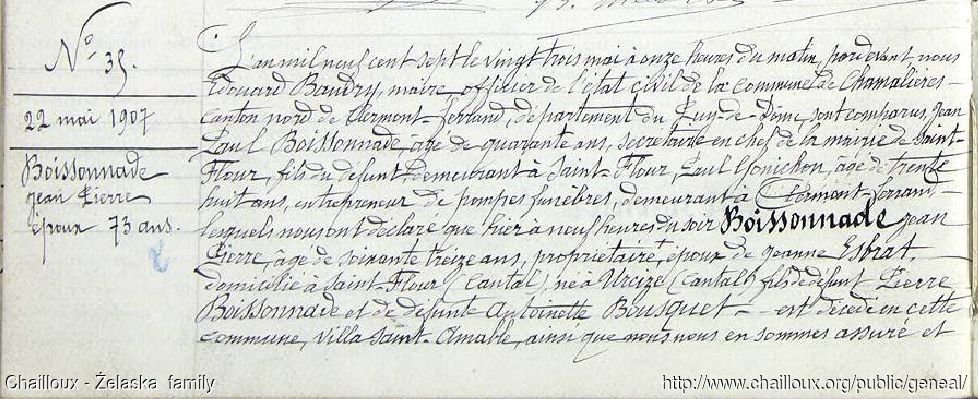 N° 35.
22 mai 1907
Boissonnade
Jean Pierre
époux 73 ans.
L'an mil neuf cent sept le vingt trois mai à onze heures du matin, par devant nous
Edouard Baudry, maire officier de l'état civil de la commune de Chamalières
canton nord de Clermont-Ferrand, département du Puy-de-Dôme, sont comparus Jean
Paul Boissonnade, âgé de quarante ans, secrétaire en chef de la mairie de Saint-
Flour, fils du défunt, demeurant à Saint-Flour, Paul Gonichon, âgé de trente
huit ans, entrepreneur de pompes funèbres, demeurant à Clermont-Ferrand
lesquels nous ont déclaré que hier à neuf heures du soir Boissonnade Jean
Pierre, âgé de soixante treize ans, propriétaire, époux de Jeanne Esbrat,
domicilié à Saint-Flour (Cantal), né à Urcize (Cantal) fils de défunt Pierre
Boissonnade et de défunte Antoinette Bousquet - est décédé en cette
commune, villa Saint-Amable, ainsi que nous nous en sommes assuré et
Chailloux - Żelaska family
http://www.chailloux.org/public/geneal/